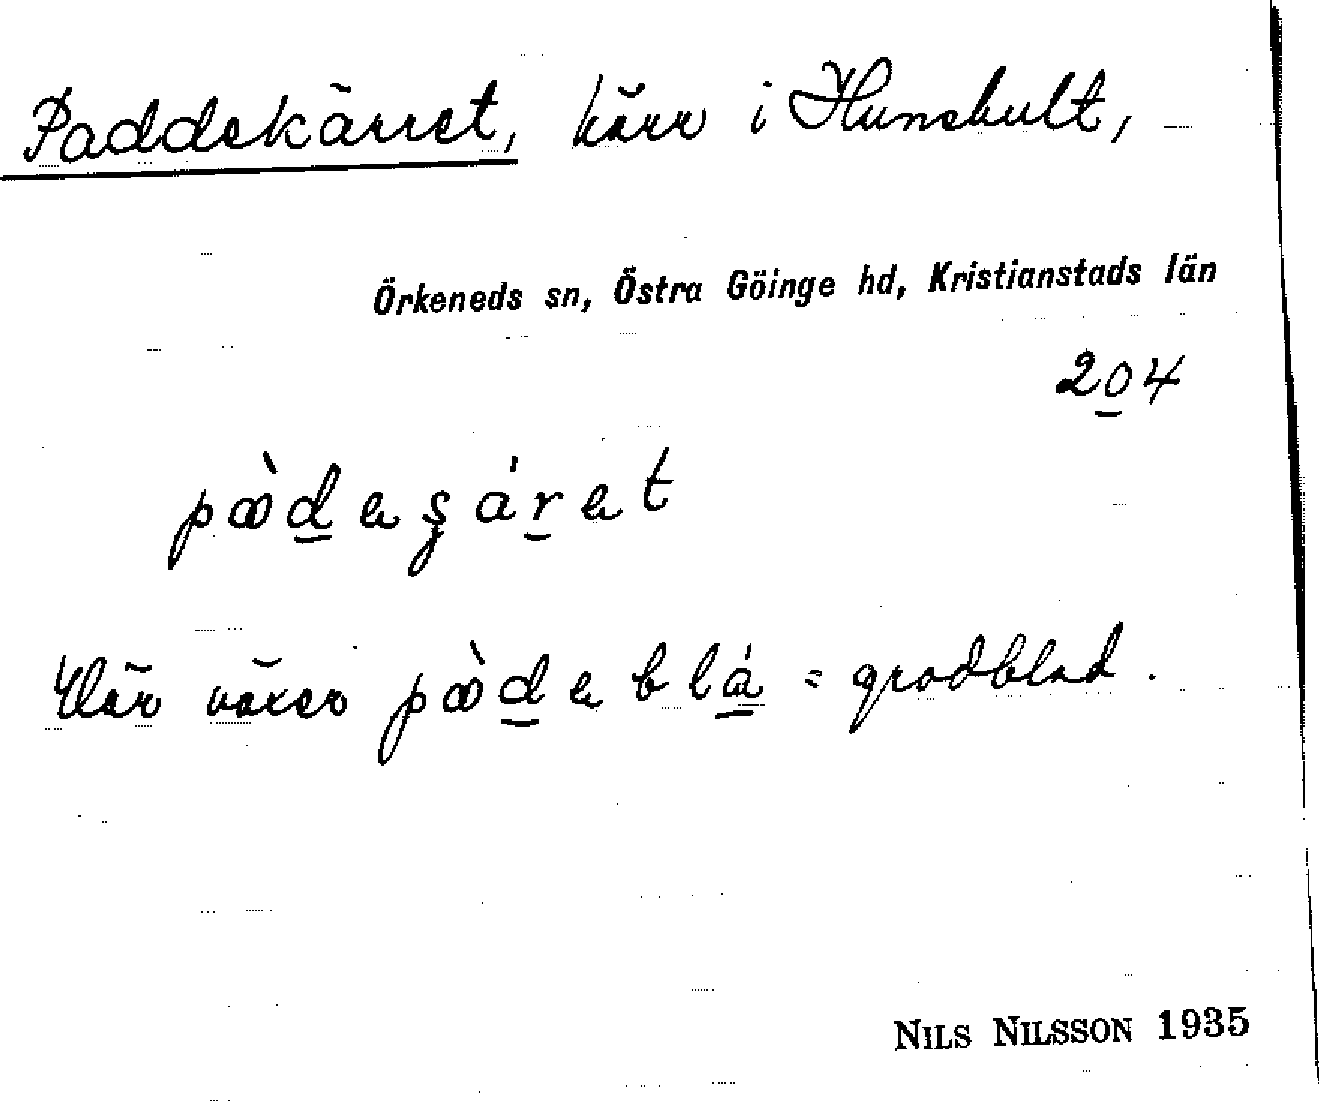 Paddekärret, kärr i Hunshult,
Örkeneds sn, Östra Göinge hd, Kristianstads län
204
Där växer = grodblad.
NILS NILSSON 1935